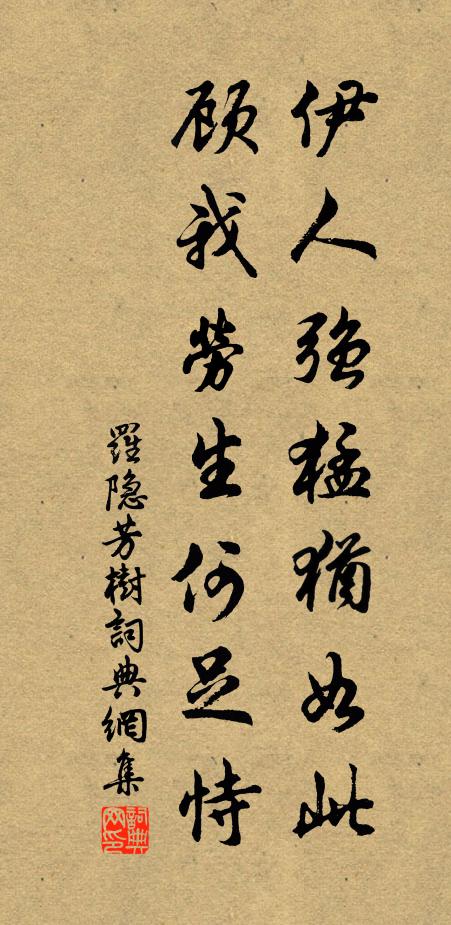 伊人強猛猶如此
顧我勞生何足恃
羅隱芳樹詞典網集
詞典网印